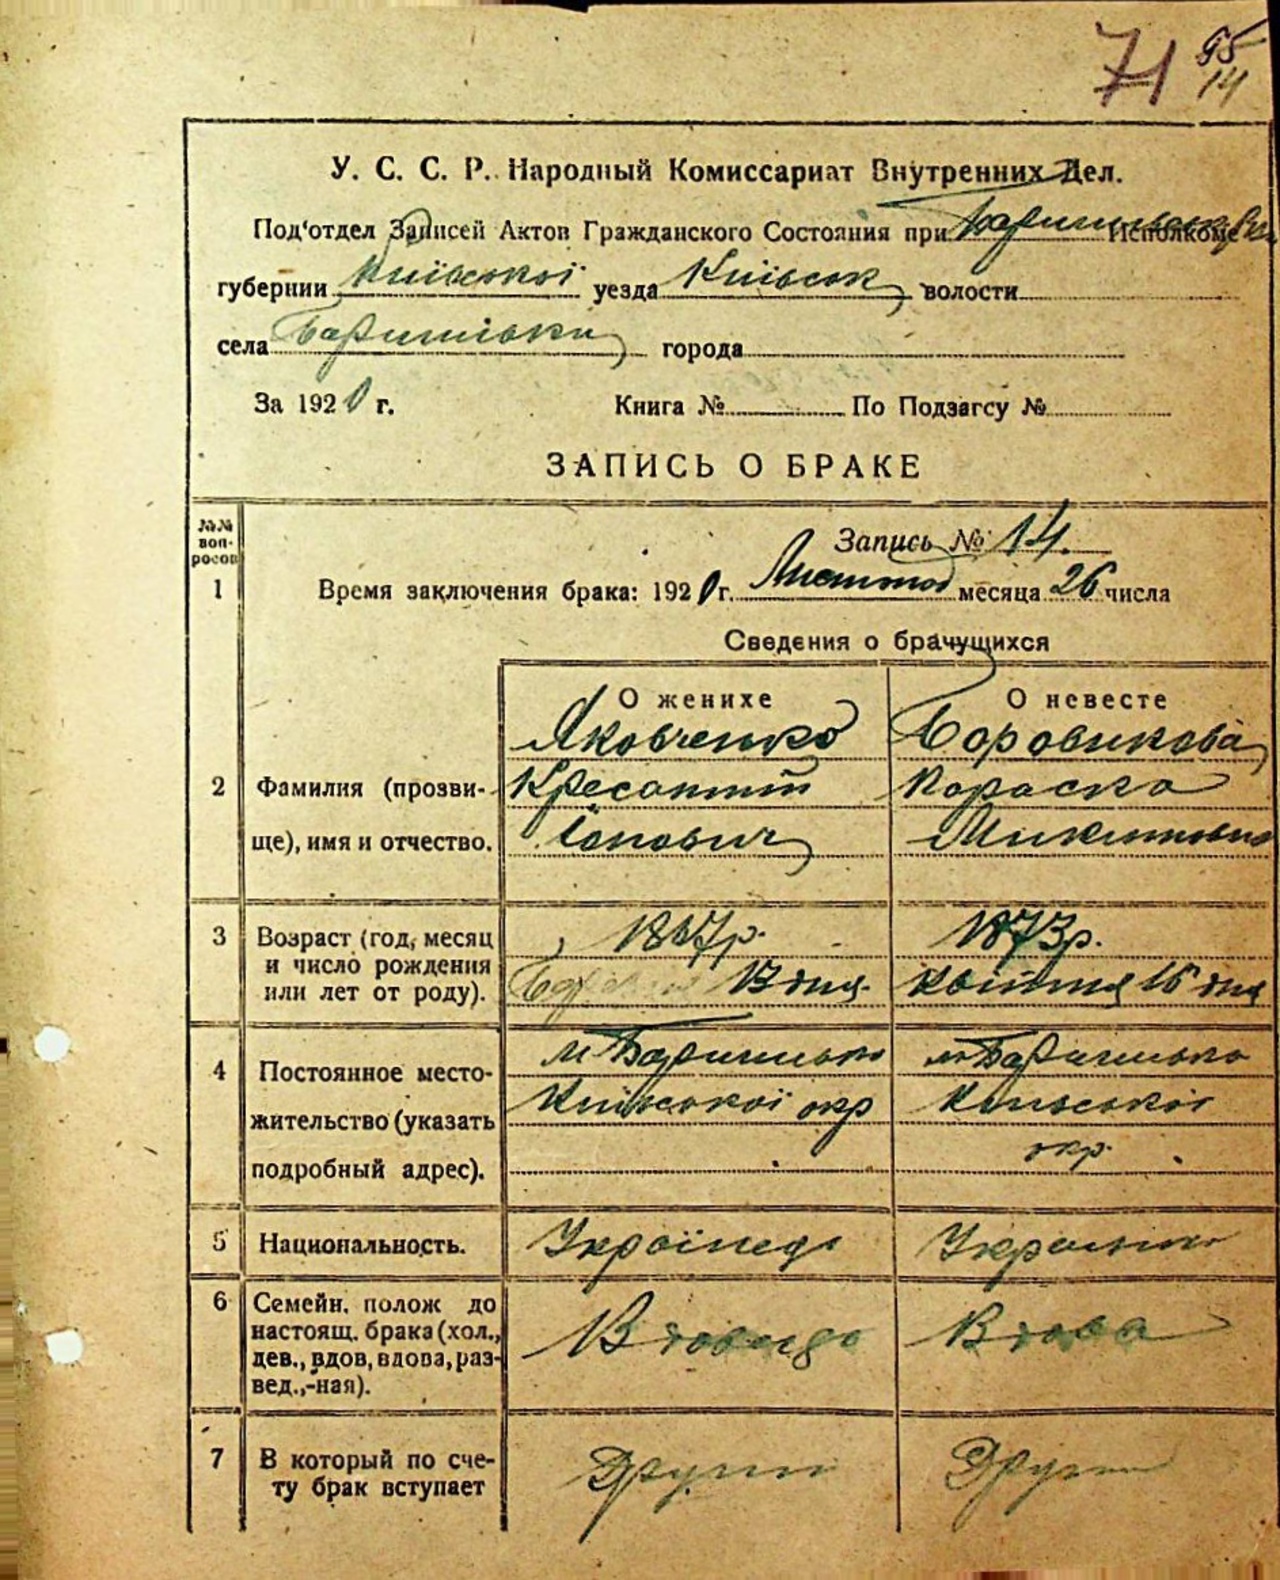 71 95
14
У. С. С. Р. Народный Комиссариат Внутренних Дел.
Под'отдел Записей Актов Гражданского Состояния при Исполкоме
губернии Київської уезда Київськ волости
села Баришівки города
За 1920 г. Книга № По Подзагсу №
ЗАПИСЬ О БРАКЕ
№№ воп-росов
Запись № 14.
1 Время заключения брака: 1920 г. Листопад месяца 26 числа
Сведения о брачущихся
О женихе О невесте
Яковченко Боровикова
2 Фамилия (прозви- Кресантій Параска
ще), имя и отчество. Микитовна
3 Возраст (год, месяц 1867р. 1873р.
и число рождения 13 дня. Квітня 16 дня
или лет от роду).
4 Постоянное место- м Баришівка м Баришівка
жительство (указать Київської окр Київської
окр.
подробный адрес).
5 Национальность. Українець Українка
6 Семейн. полож до
настоящ. брака (хол., Вдовець Вдова
дев., вдов, вдова, раз-
вед.,-ная).
7 В который по сче- Другий Другий
ту брак вступает